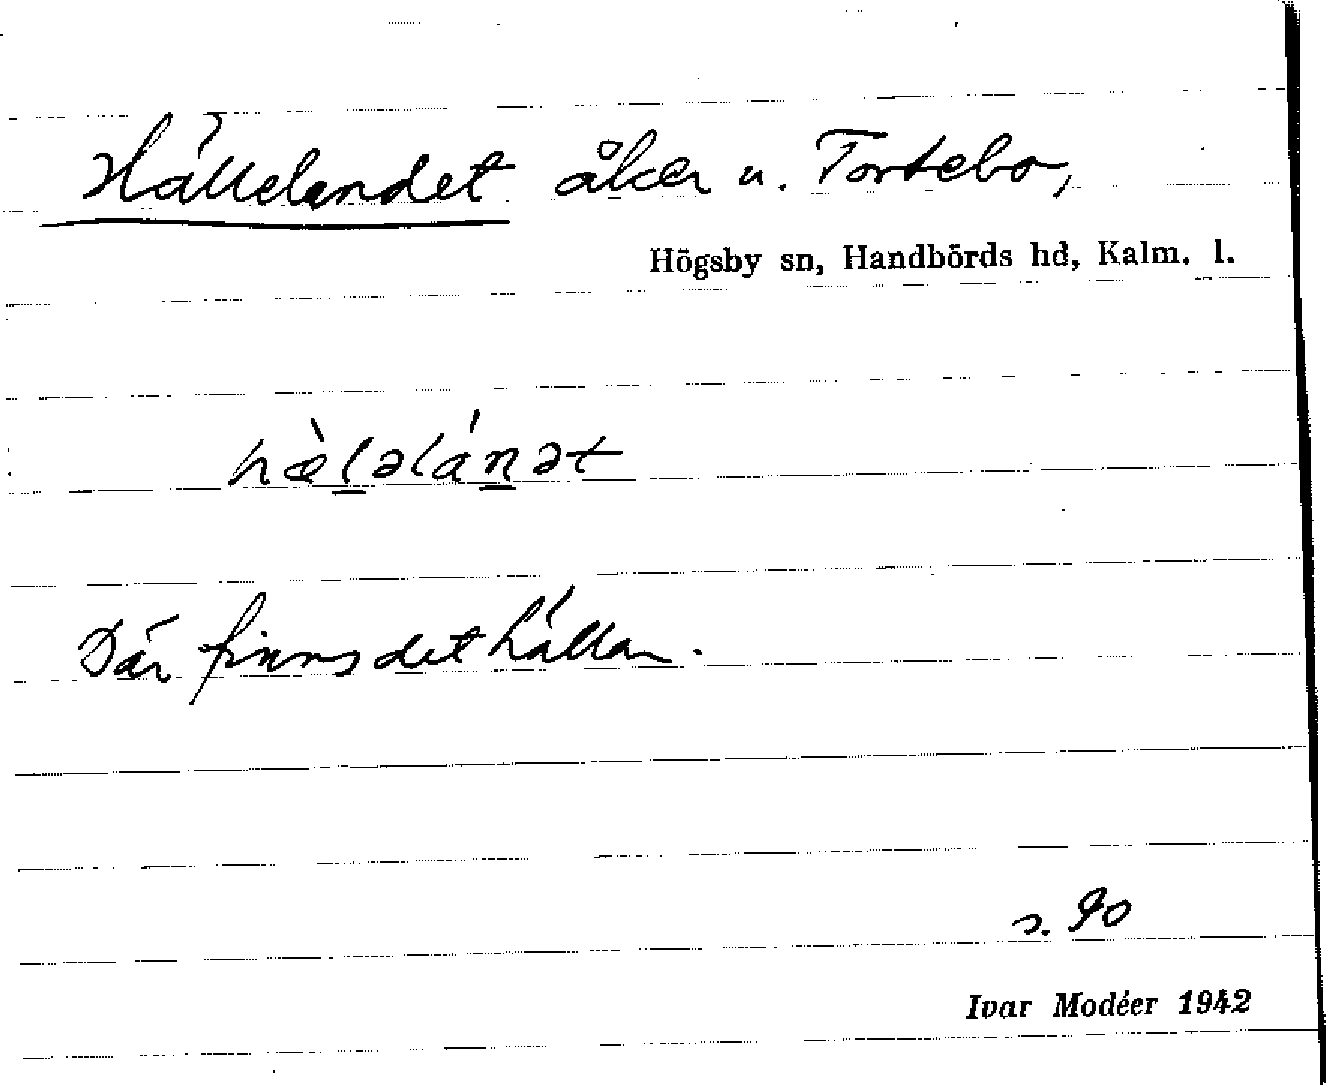 Hällelandet åker u. Tortebo,
Högsby sn, Handbörds hd, Kalm. l.
hæ̀l̲əlán̲ət
Där finns det hällar.
s. 90
Ivar Modéer 1942